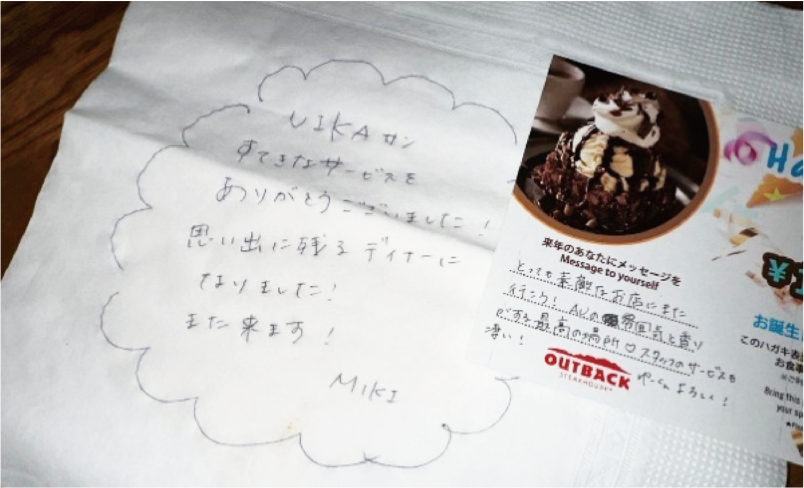 UIKA サン
すてきなサービスを
ありがとうございました!
思い出に残るディナーに
なりました!
また来ます!
MIKI
来年のあなたにメッセージを
Message to yourself
とっても素敵なお店にまた
行こう! AUの雰囲気と香り
がする最高の場所♡スタッフのサービスも
凄い! よろしく!
OUTBACK
STEAKHOUSE
Ha
お誕生
このハガキを
お食事
Bring this
your sp